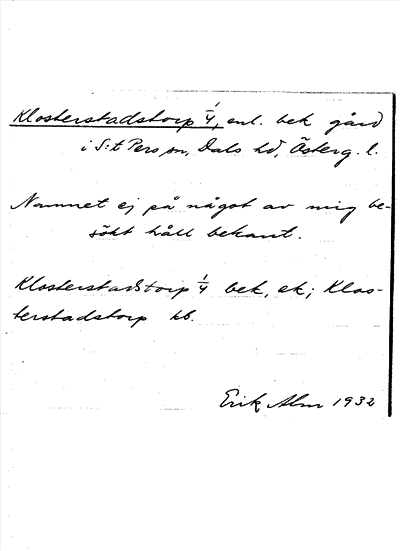 Klosterstadstorp 1/4, enl. bek gård
i S:t Pers sn, Dals hd, Österg. l.
Namnet ej på något av mig be-
sökt håll bekant.
Klosterstadstorp 1/4 bek, ek; Klos-
terstadstorp kb.
Erik Alm 1932